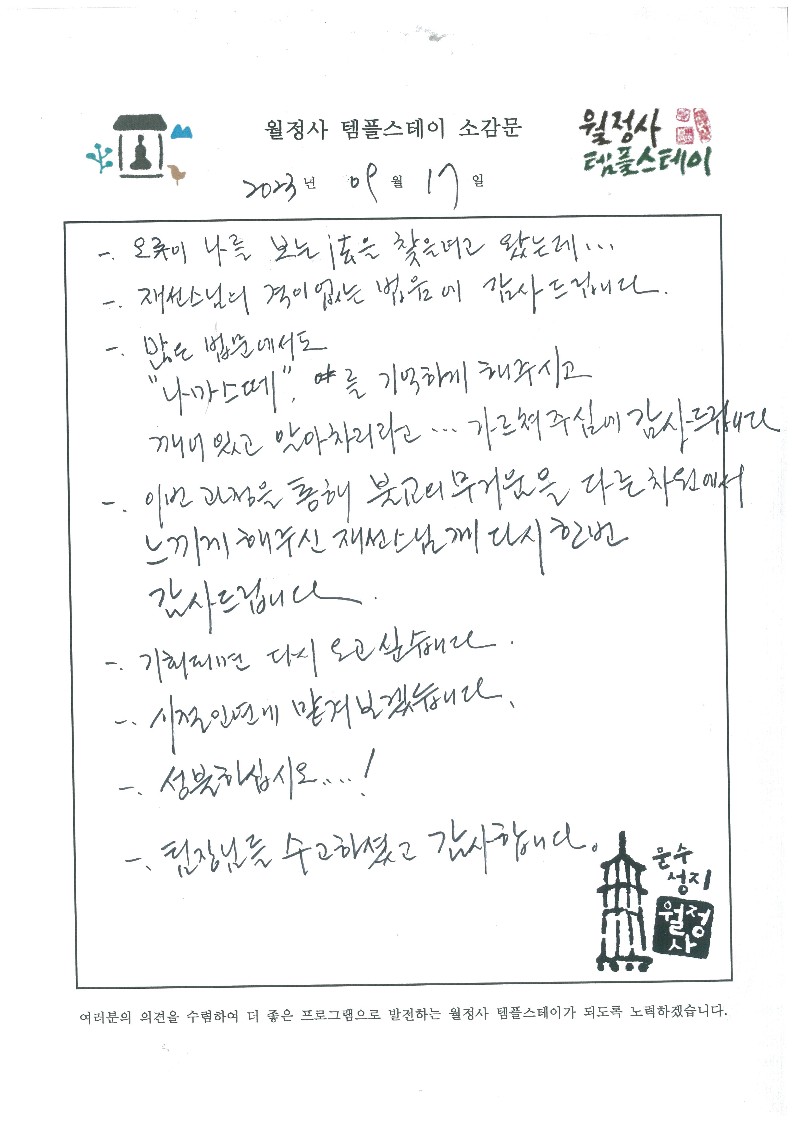 월정사 템플스테이 소감문
월정사
템플스테이
2023년 09월 17일
一. 오롯이 나를 보는 法을 찾을려고 왔는데...
一. 재선스님의 격이없는 법음에 감사드립니다.
一. 많은 법문에서도
"나마스떼", 를 기억하게 해주시고
깨어있고 알아차리라고 ... 가르쳐주심에 감사드립니다
一. 이번 과정을 통해 불교의 무거움을 다른차원에서
느끼게 해주신 재선스님께 다시한번
감사드립니다.
一. 기회되면 다시 오고싶습니다.
一. 시절인연에 맡겨보겠습니다.
一. 성불하십시오....!
一. 팀장님들 수고하셨고 감사합니다.
문수
성지
월정
사
여러분의 의견을 수렴하여 더 좋은 프로그램으로 발전하는 월정사 템플스테이가 되도록 노력하겠습니다.